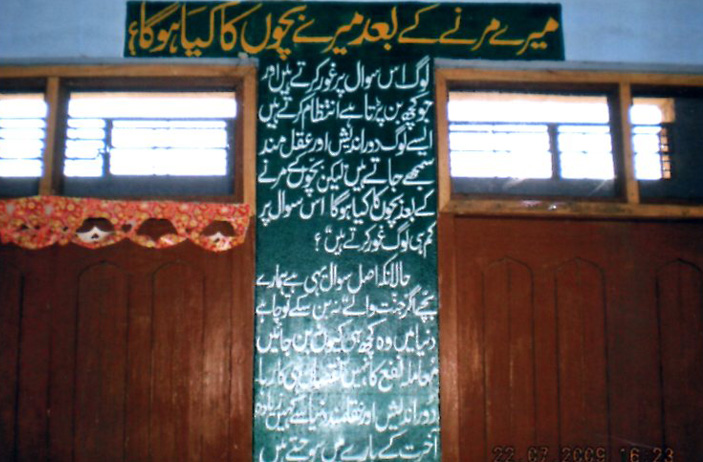 میرے مرنے کے بعد میرے بچوں کا کیا ہوگا؟
لوگ اس سوال پر غور کرتے ہیں اور
جو کچھ بن پڑتا ہے انتظام کرتے ہیں
ایسے لوگ دور اندیش اور عقل مند
سمجھے جاتے ہیں لیکن بچوں کے مرنے
کے بعد بچوں کا کیا ہوگا اس سوال پر
کم ہی لوگ غور کرتے ہیں"؟
حالانکہ اصل سوال یہی ہے ہمارے
بچے اگر "جنت والے" نہ بن سکے تو چاہے
دنیا میں وہ کچھ ہی کیوں نہ بن جائیں
معاملہ نفع کا نہیں نقصان ہی کا رہا
دور اندیش اور عقلمند دنیا سے کہیں زیادہ
آخرت کے بارے میں سوچتے ہیں
22 07 2009 16 23